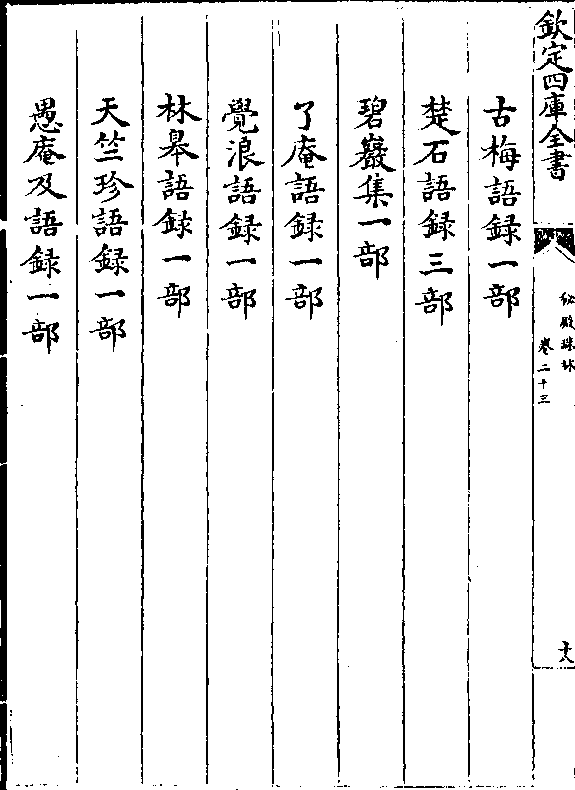 欽定四庫全書
秘殿珠林
卷二十三
十八
古梅語録一部
楚石語録三部
碧巖集一部
了庵語録一部
覺浪語録一部
林臯語録一部
天竺珍語録一部
愚庵及語録一部